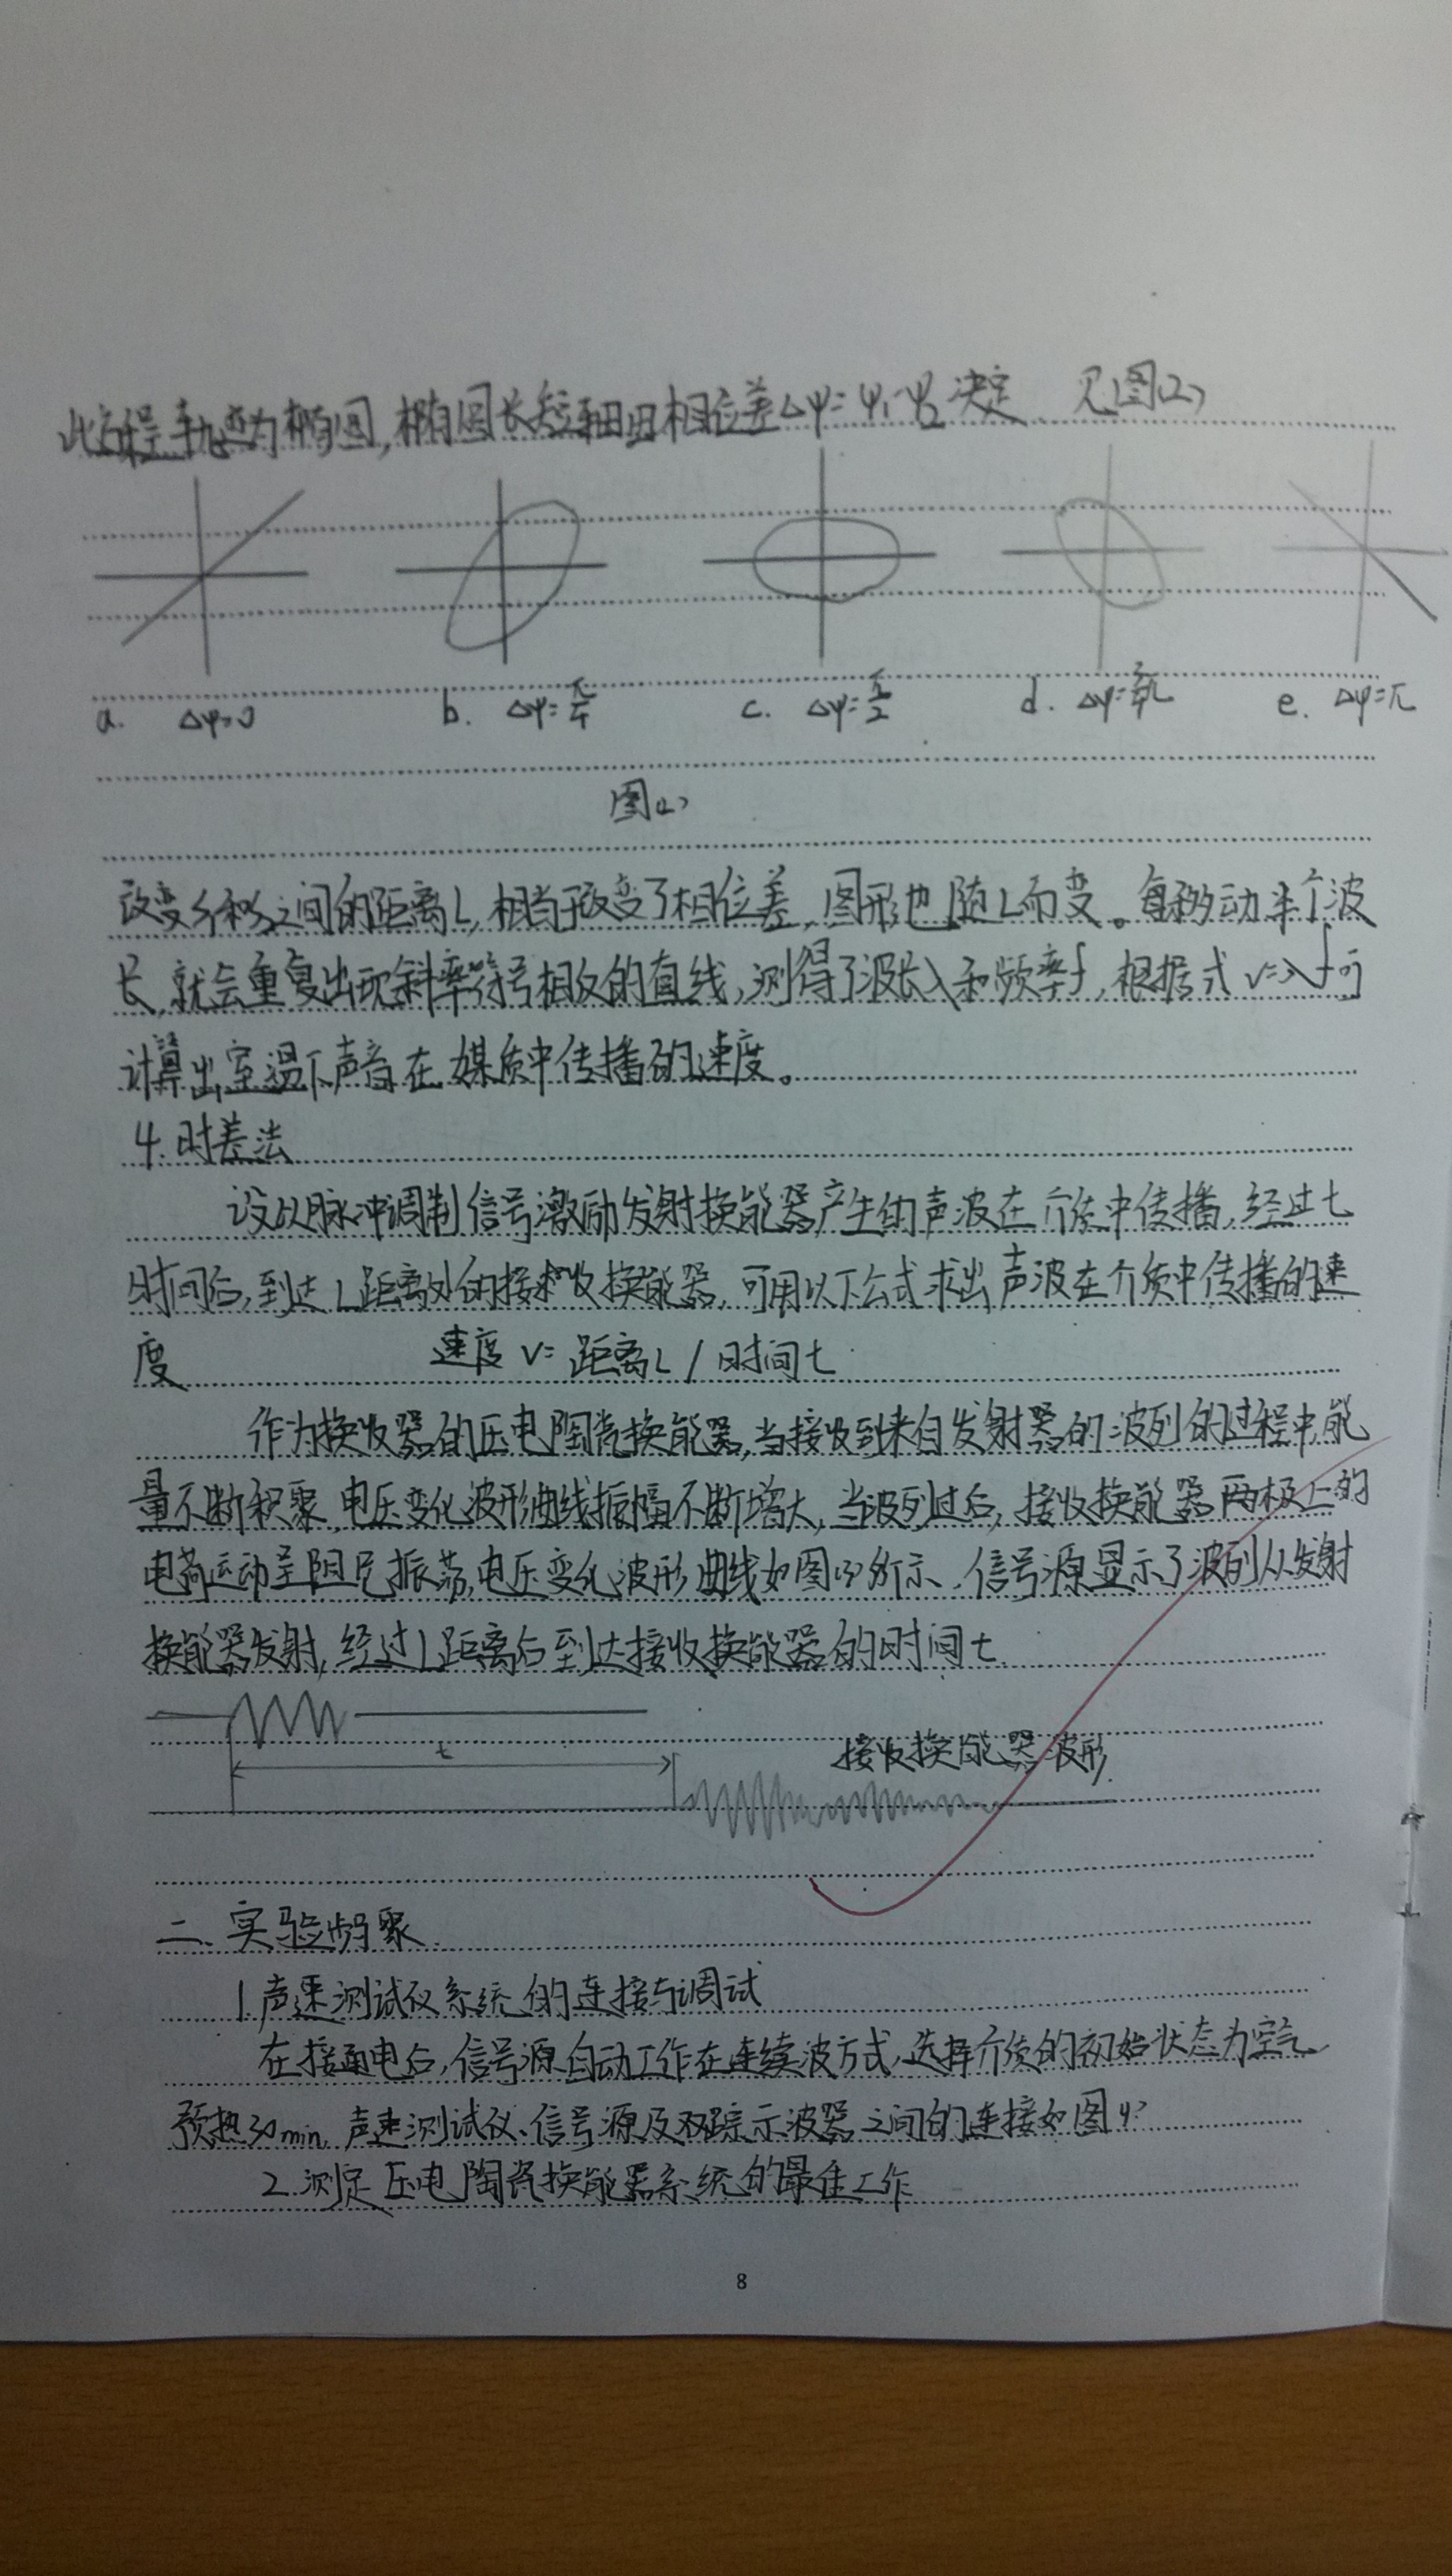 此方程轨迹为椭圆,椭圆长短轴由相位差Δψ=ψ₁-ψ₂决定 见图(2)
a. Δψ=0 b. Δψ=π/4 c. Δψ=π/2 d. Δψ=3/4π e. Δψ=π
图(2)
改变S₁和S₂之间的距离L,相当于改变了相位差,图形也随L而变。每移动半个波
长,就会重复出现斜率符号相反的直线,测得了波长λ和频率f,根据式v=λf可
计算出室温下声音在媒质中传播的速度。
4.时差法
设以脉冲调制信号激励发射换能器产生的声波在介质中传播,经过t
时间后,到达L距离处的接收换能器,可用以下公式求出声波在介质中传播的速
度 速度v=距离L/时间t
作为换收器的压电陶瓷换能器,当接收到来自发射器的波列的过程中,能
量不断积聚,电压变化波形曲线振幅不断增大,当波列过后,接收换能器两极上的
电荷运动呈阻尼振荡,电压变化波形曲线如图(3)所示.信号源显示了波列从发射
换能器发射,经过L距离后到达接收换能器的时间t.
t
接收换能器波形.
二.实验步聚.
1.声速测试仪系统的连接与调试
在接通电后,信号源自动工作在连续波方式,选择介质的初始状态为空气
预热30min.声速测试仪、信号源及双踪示波器之间的连接如图4?
2.测定压电陶瓷换能器系统的最佳工作
8